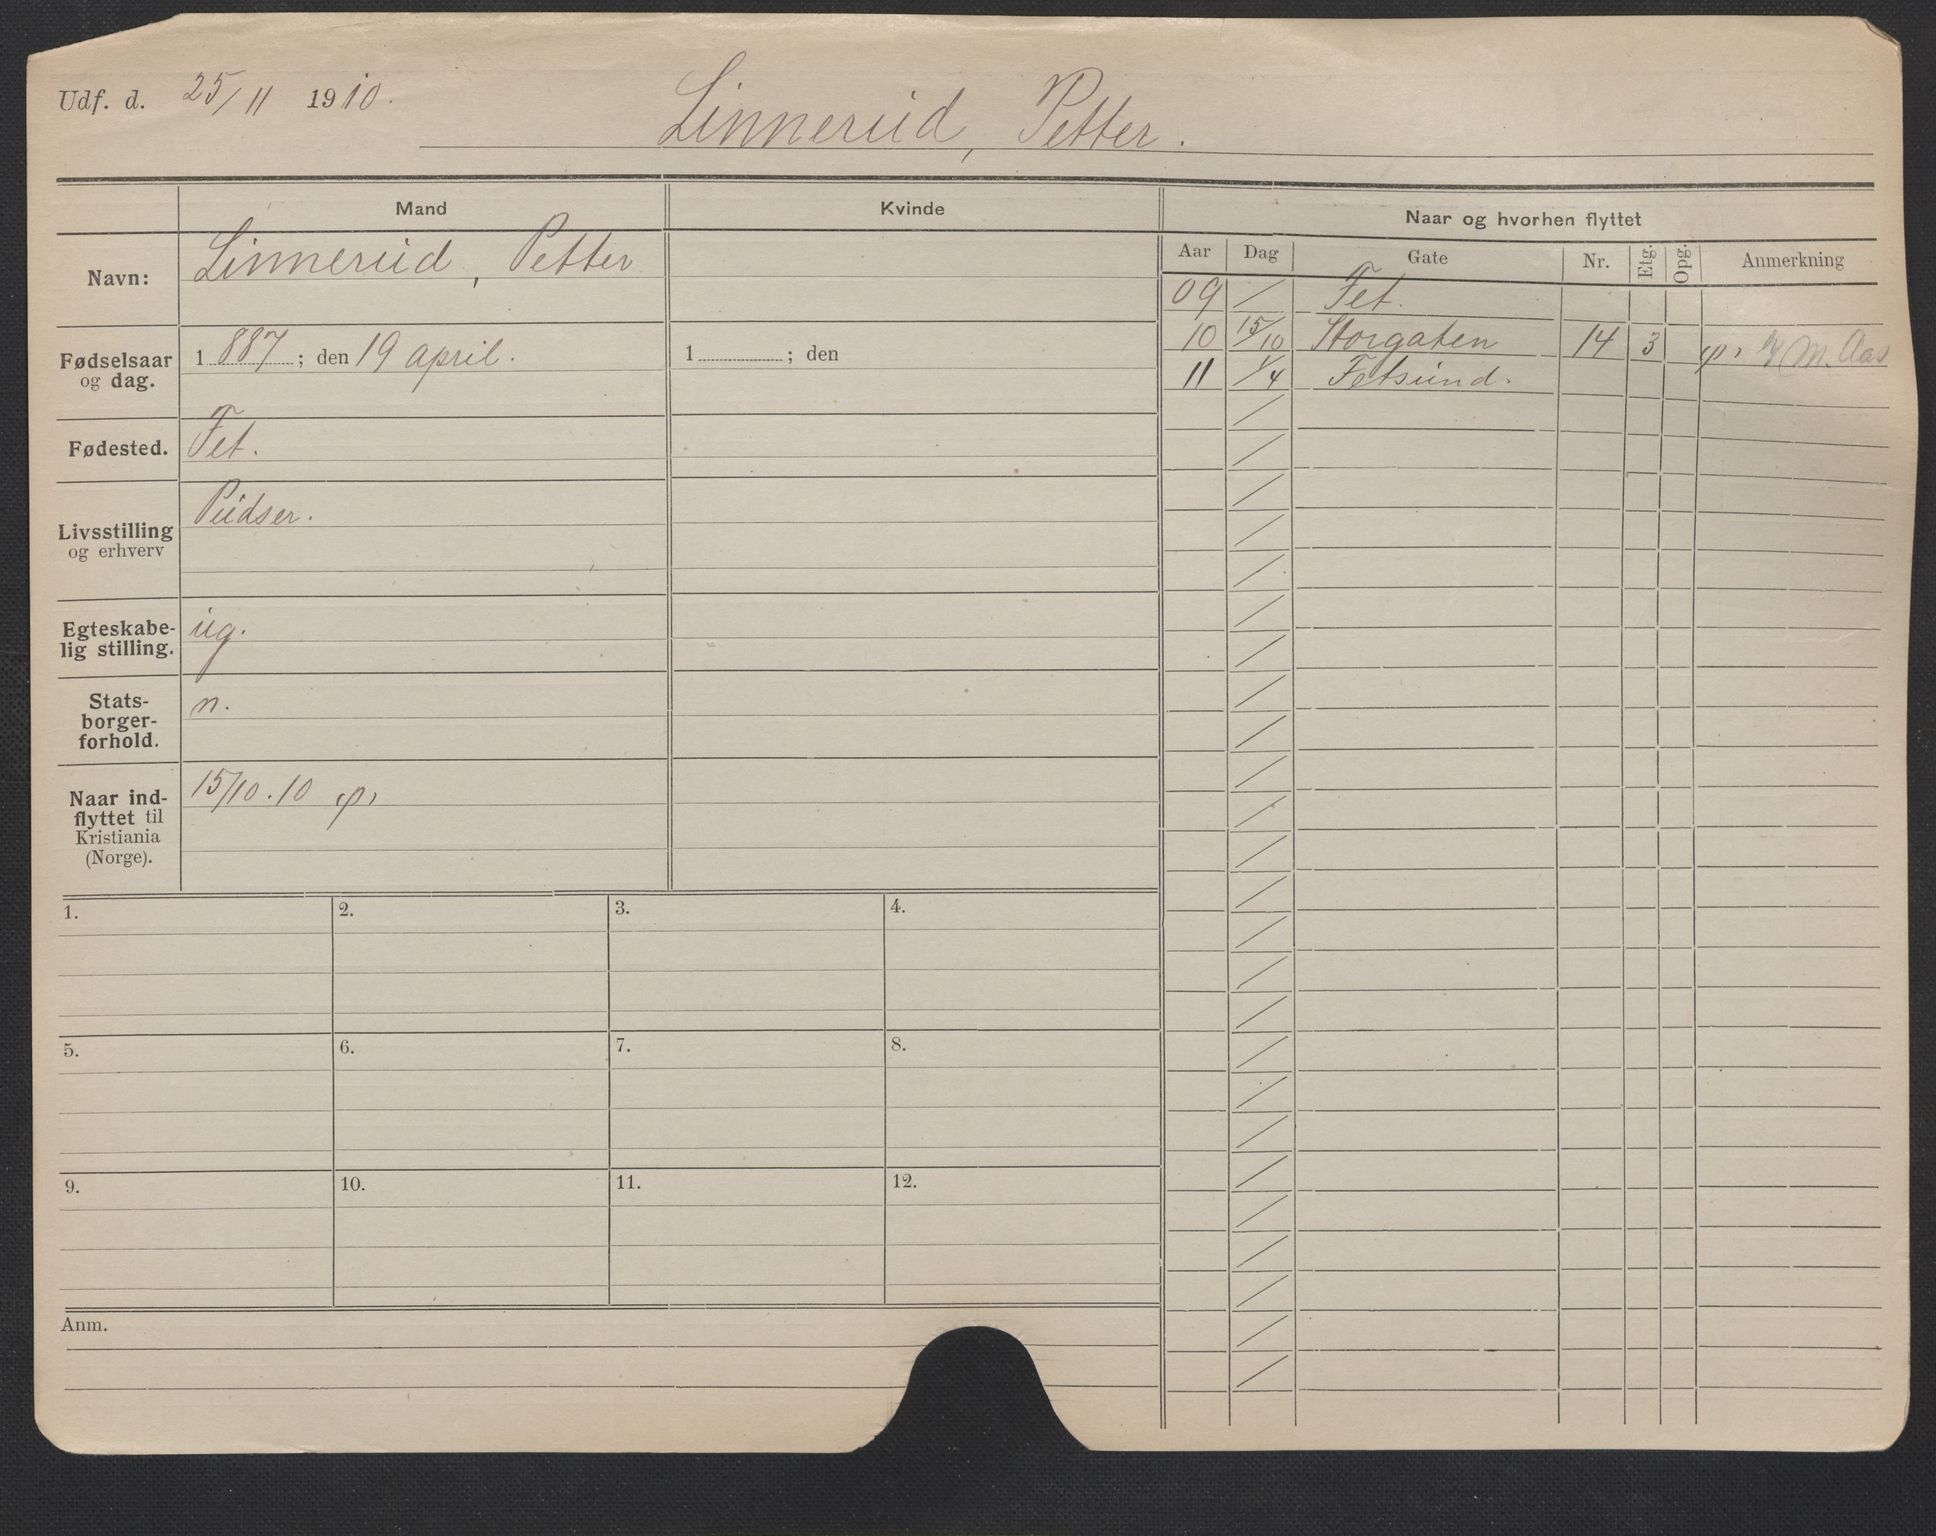 Udf. d. 25/11 1910.
Linnerud, Petter.
Mand
Kvinde
Naar og hvorhen flyttet
Aar Dag Gate Nr. Etg. Opg. Anmerkning
Navn: Linnerud, Petter
Fødselsaar og dag. 1887; den 19 april.
1 ; den
Fødested. Fet.
Livsstilling og erhverv Pudser.
Egteskabelig stilling. ug.
Statsborgerforhold. n.
Naar indflyttet til Kristiania (Norge). 15/10.10
09 / Fet.
10 15/10 Storgaten 14 3 M. Aas
11 1/4 Fetsund.
1. 2. 3. 4.
5. 6. 7. 8.
9. 10. 11. 12.
Anm.